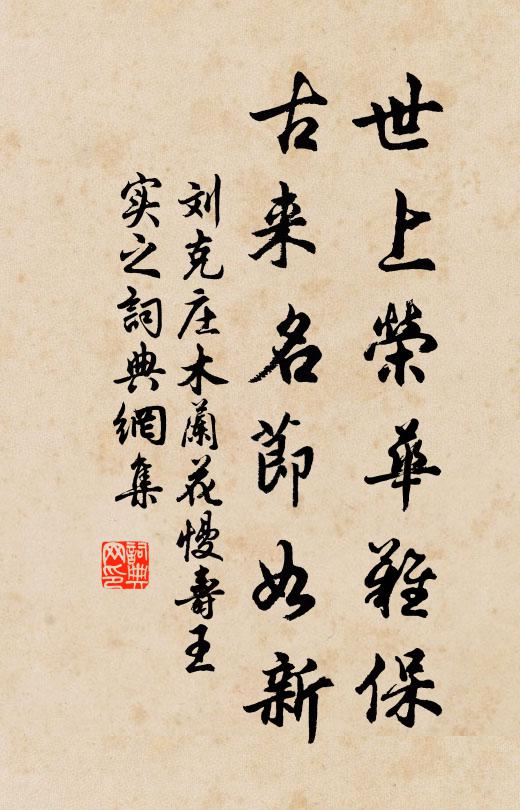 世上榮華難保
古来名節如新
刘克庄木蘭花慢壽王
实之詞典網集
詞典
网印